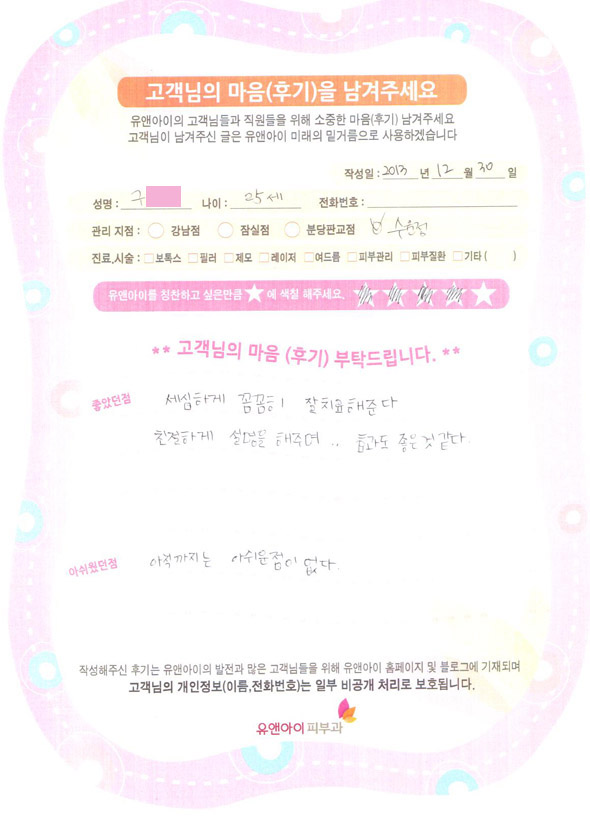 고객님의 마음(후기)을 남겨주세요
유앤아이의 고객님들과 직원들을 위해 소중한 마음(후기) 남겨주세요
고객님이 남겨주신 글은 유앤아이 미래의 밑거름으로 사용하겠습니다
작성일 : 2013 년 12 월 30 일
성명 : 구 나이 : 25세 전화번호 :
관리 지점 : 강남점 잠실점 분당판교점 수원점
진료,시술 : 보톡스 필러 제모 레이저 여드름 피부관리 피부질환 기타 ( )
유앤아이를 칭찬하고 싶은만큼 ★ 에 색칠 해주세요.
** 고객님의 마음 (후기) 부탁드립니다. **
좋았던점 세심하게 꼼꼼히 잘치료해준다
친절하게 설명을 해주며 .. 효과도 좋은것 같다.
아쉬웠던점 아직까지는 아쉬운점이 없다.
작성해주신 후기는 유앤아이의 발전과 많은 고객님들을 위해 유앤아이 홈페이지 및 블로그에 기재되며
고객님의 개인정보(이름,전화번호)는 일부 비공개 처리로 보호됩니다.
유앤아이피부과